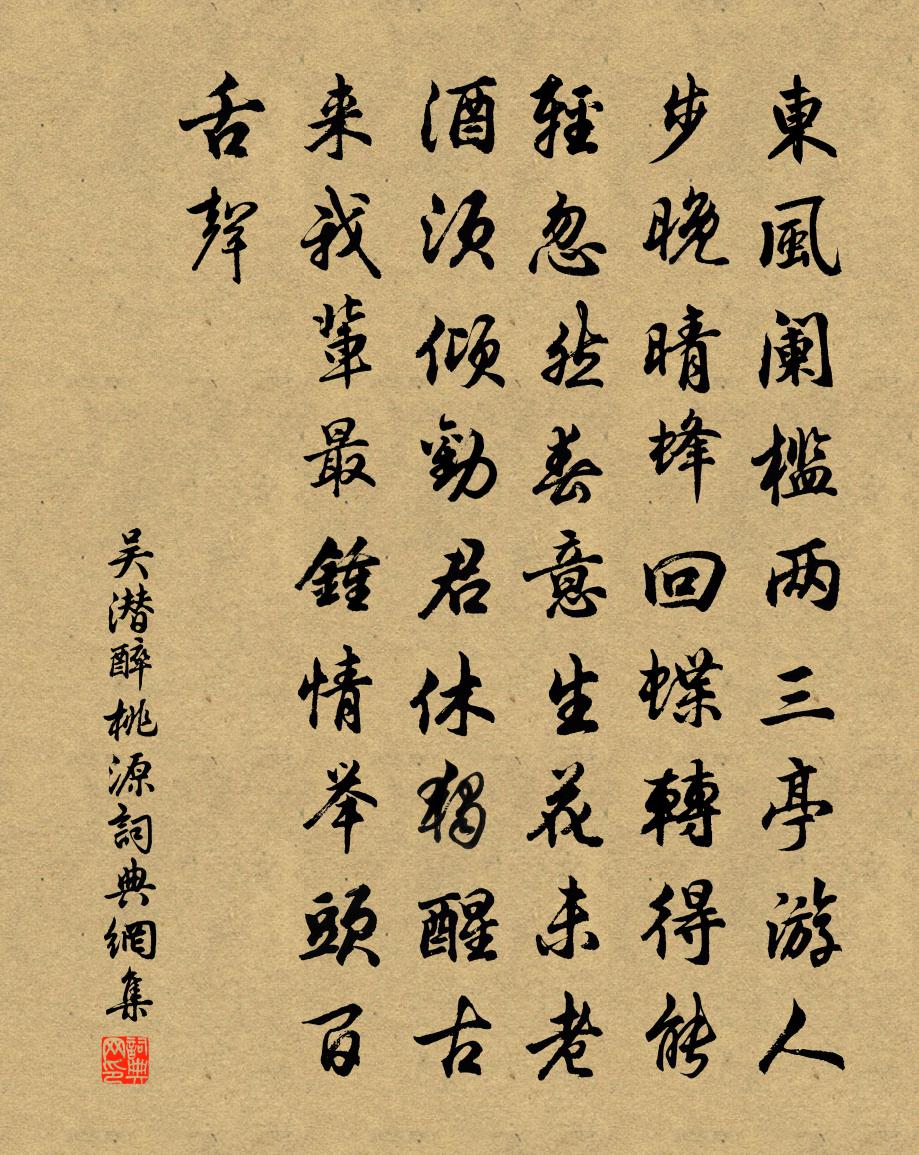 東風闌檻两三亭游人
步晚晴蜂回蝶轉得能
輕忽然春意生花未老
酒須傾勸君休獨醒古
来我輩最鍾情举頭百
舌聲
吴潜醉桃源詞典網集
詞典网印